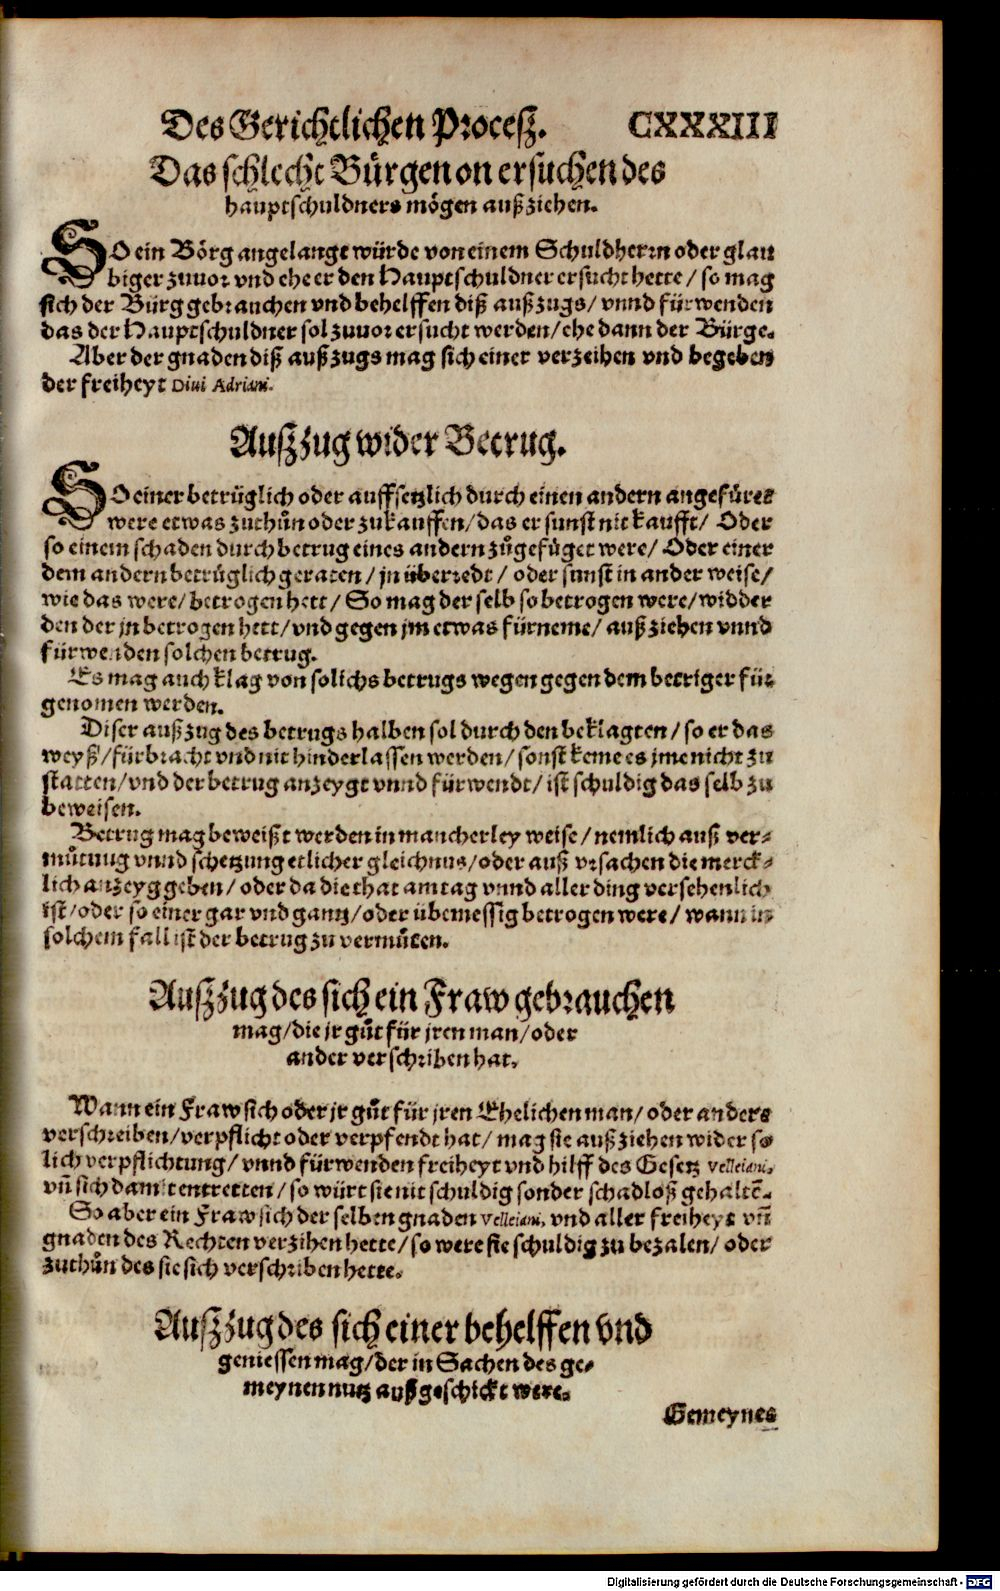 Des Gerichtlichen Procesz. CXXXIII
Das schlecht Bürgen on ersuchen des
hauptschuldners mögen außziehen.
SO ein Börg angelangt würde von einem Schuldherrn oder glau
biger zuuor vnd ehe er den Hauptschuldner ersucht hette / so mag
sich der Bürg gebrauchen vnd behelffen diß außzugs / vnnd fürwenden
das der Hauptschuldner sol zuuor ersucht werden / ehe dann der Bürge.
Aber der gnaden diß außzugs mag sich einer verzeihen vnd begeben
der freiheyt Diui Adriani.
Auszzug wider Betrug.
SO einer betrüglich oder auffsetzlich durch einen andern angefüret
were etwas zuthůn oder zukauffen / das er sunst nit kaufft / Oder
so einem schaden durch betrug eines andern zůgefüget were / Oder einer
dem andern betrüglich geraten / jn überredt / oder sunst in ander weise /
wie das were / betrogen hett / So mag der selb so betrogen were / widder
den der jn betrogen hett / vnd gegen jm etwas fürneme / außziehen vnnd
fürwenden solchen betrug.
Es mag auch klag von solichs betrugs wegen gegen dem betriger für
genomen werden.
Diser außzug des betrugs halben sol durch den beklagten / so er das
weyß / fürbracht vnd nit hinderlassen werden / sonst keme es jme nicht zu
statten / vnd der betrug anzeygt vnnd fürwendt / ist schuldig das selb zu
beweisen.
Betrug mag beweißt werden in mancherley weise / nemlich auß ver-
můtung vnnd schetzung etlicher gleichnus / oder auß vrsachen die merck-
lich anzeyg geben / oder da die that am tag vnnd aller ding versehenlich
ist / oder so einer gar vnd gantz / oder übemessig betrogen were / wann in
solchem fall ist der betrug zu vermůten.
Auszzug des sich ein Fraw gebrauchen
mag / die jr gůt für jren man / oder
ander verschriben hat.
Wann ein Fraw sich oder jr gůt für jren Ehelichen man / oder anders
verschreiben / verpflicht oder verpfendt hat / mag sie außziehen wider so
lich verpflichtung / vnnd fürwenden freiheyt vnd hilff des Gesetz Velleiani,
vñ sich damit entretten / so würt sie nit schuldig sonder schadloß gehaltē.
So aber ein Fraw sich der selben gnaden Velleiani, vnd aller freiheyt vñ
gnaden des Rechten verzihen hette / so were sie schuldig zu bezalen / oder
zuthůn des sie sich verschriben hette.
Auszzug des sich einer behelffen vnd
geniessen mag / der in Sachen des ge-
meynen nutz außgeschickt were.
Gemeynes
Digitalisierung gefördert durch die Deutsche Forschungsgemeinschaft - DFG